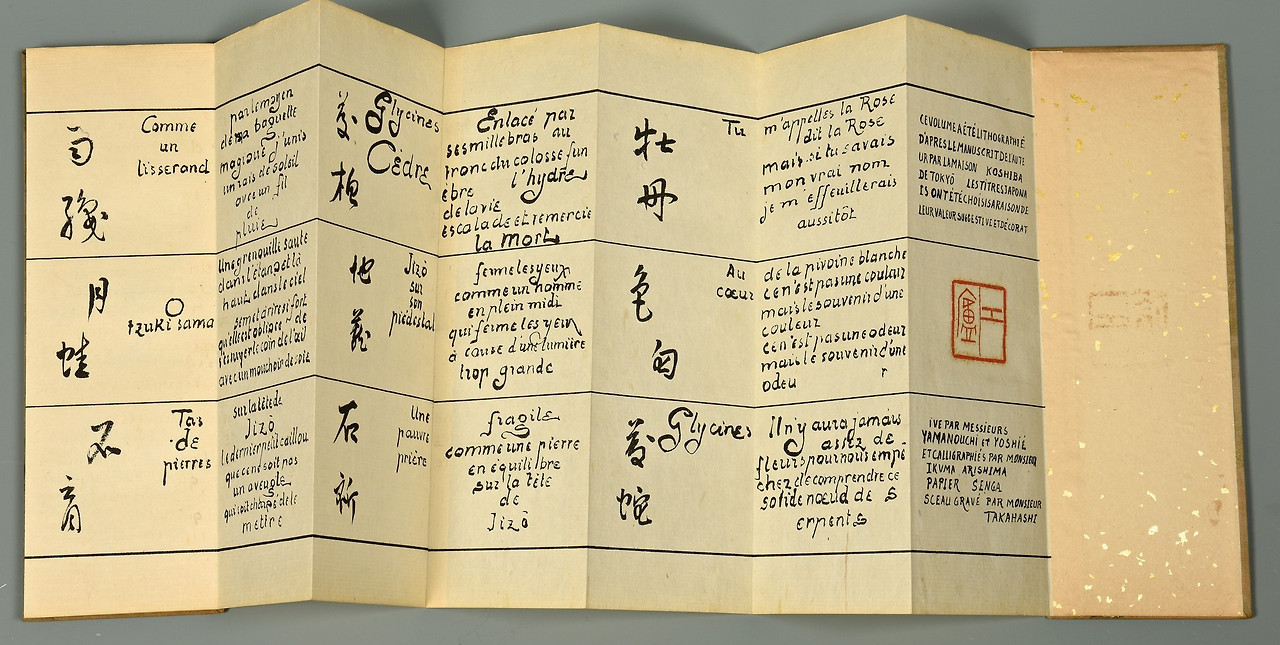 Comme
un
tisserand
par le moyen
de ma baguette
magique j'unis
un rais de soleil
avec un fil
de
pluie
月
蛙
O
tzuki sama
Une grenouille saute
dans l'étang et là
haut dans le ciel
Tas
de
pierres
sur la tête de
Jizô
le dernier petit caillou
que ce ne soit pas
un aveugle
qui soit chargé de le
mettre
藤
Glycines
Cèdre
Enlacé par
ses mille bras au
tronc du colosse fun
èbre l'hydre
de la vie
escalade et remercie
la mort
地
蔵
Jizô
sur
son
piédestal
ferme les yeux
comme un homme
en plein midi
qui ferme les yeux
à cause d'une lumière
trop grande
石
祈
Une
pauvre
prière
fragile
comme une pierre
en équilibre
sur la tête
de
Jizô
牡
丹
Tu
m'appelles la Rose
dit la Rose
mais si tu savais
mon vrai nom
je m'effeuillerais
aussitôt
色
匂
Au
cœur
de la pivoine blanche
ce n'est pas une couleur
mais le souvenir d'une
couleur
ce n'est pas une odeur
mais le souvenir d'une
odeu r
藤
蛇
Glycines
Il n'y aura jamais
assez de
fleurs pour nous empê
cher de comprendre ce
solide nœud de s
erpents
CE VOLUME A ÉTÉ LITHOGRAPHIÉ
D'APRES LE MANUSCRIT DE L'AUTE
UR PAR LA MAISON KOSHIBA
DE TOKYÔ LES TITRES JAPONA
IS ONT ÉTÉ CHOISIS A RAISON DE
LEUR VALEUR SUGGESTIVE ET DÉCORAT
IVE PAR MESSIEURS
YAMANOUCHI et YOSHIÉ
ET CALLIGRAPHIÉS PAR MONSIEUR
IKUMA ARISHIMA
PAPIER SENGA
SCEAU GRAVÉ PAR MONSIEUR
TAKAHASHI